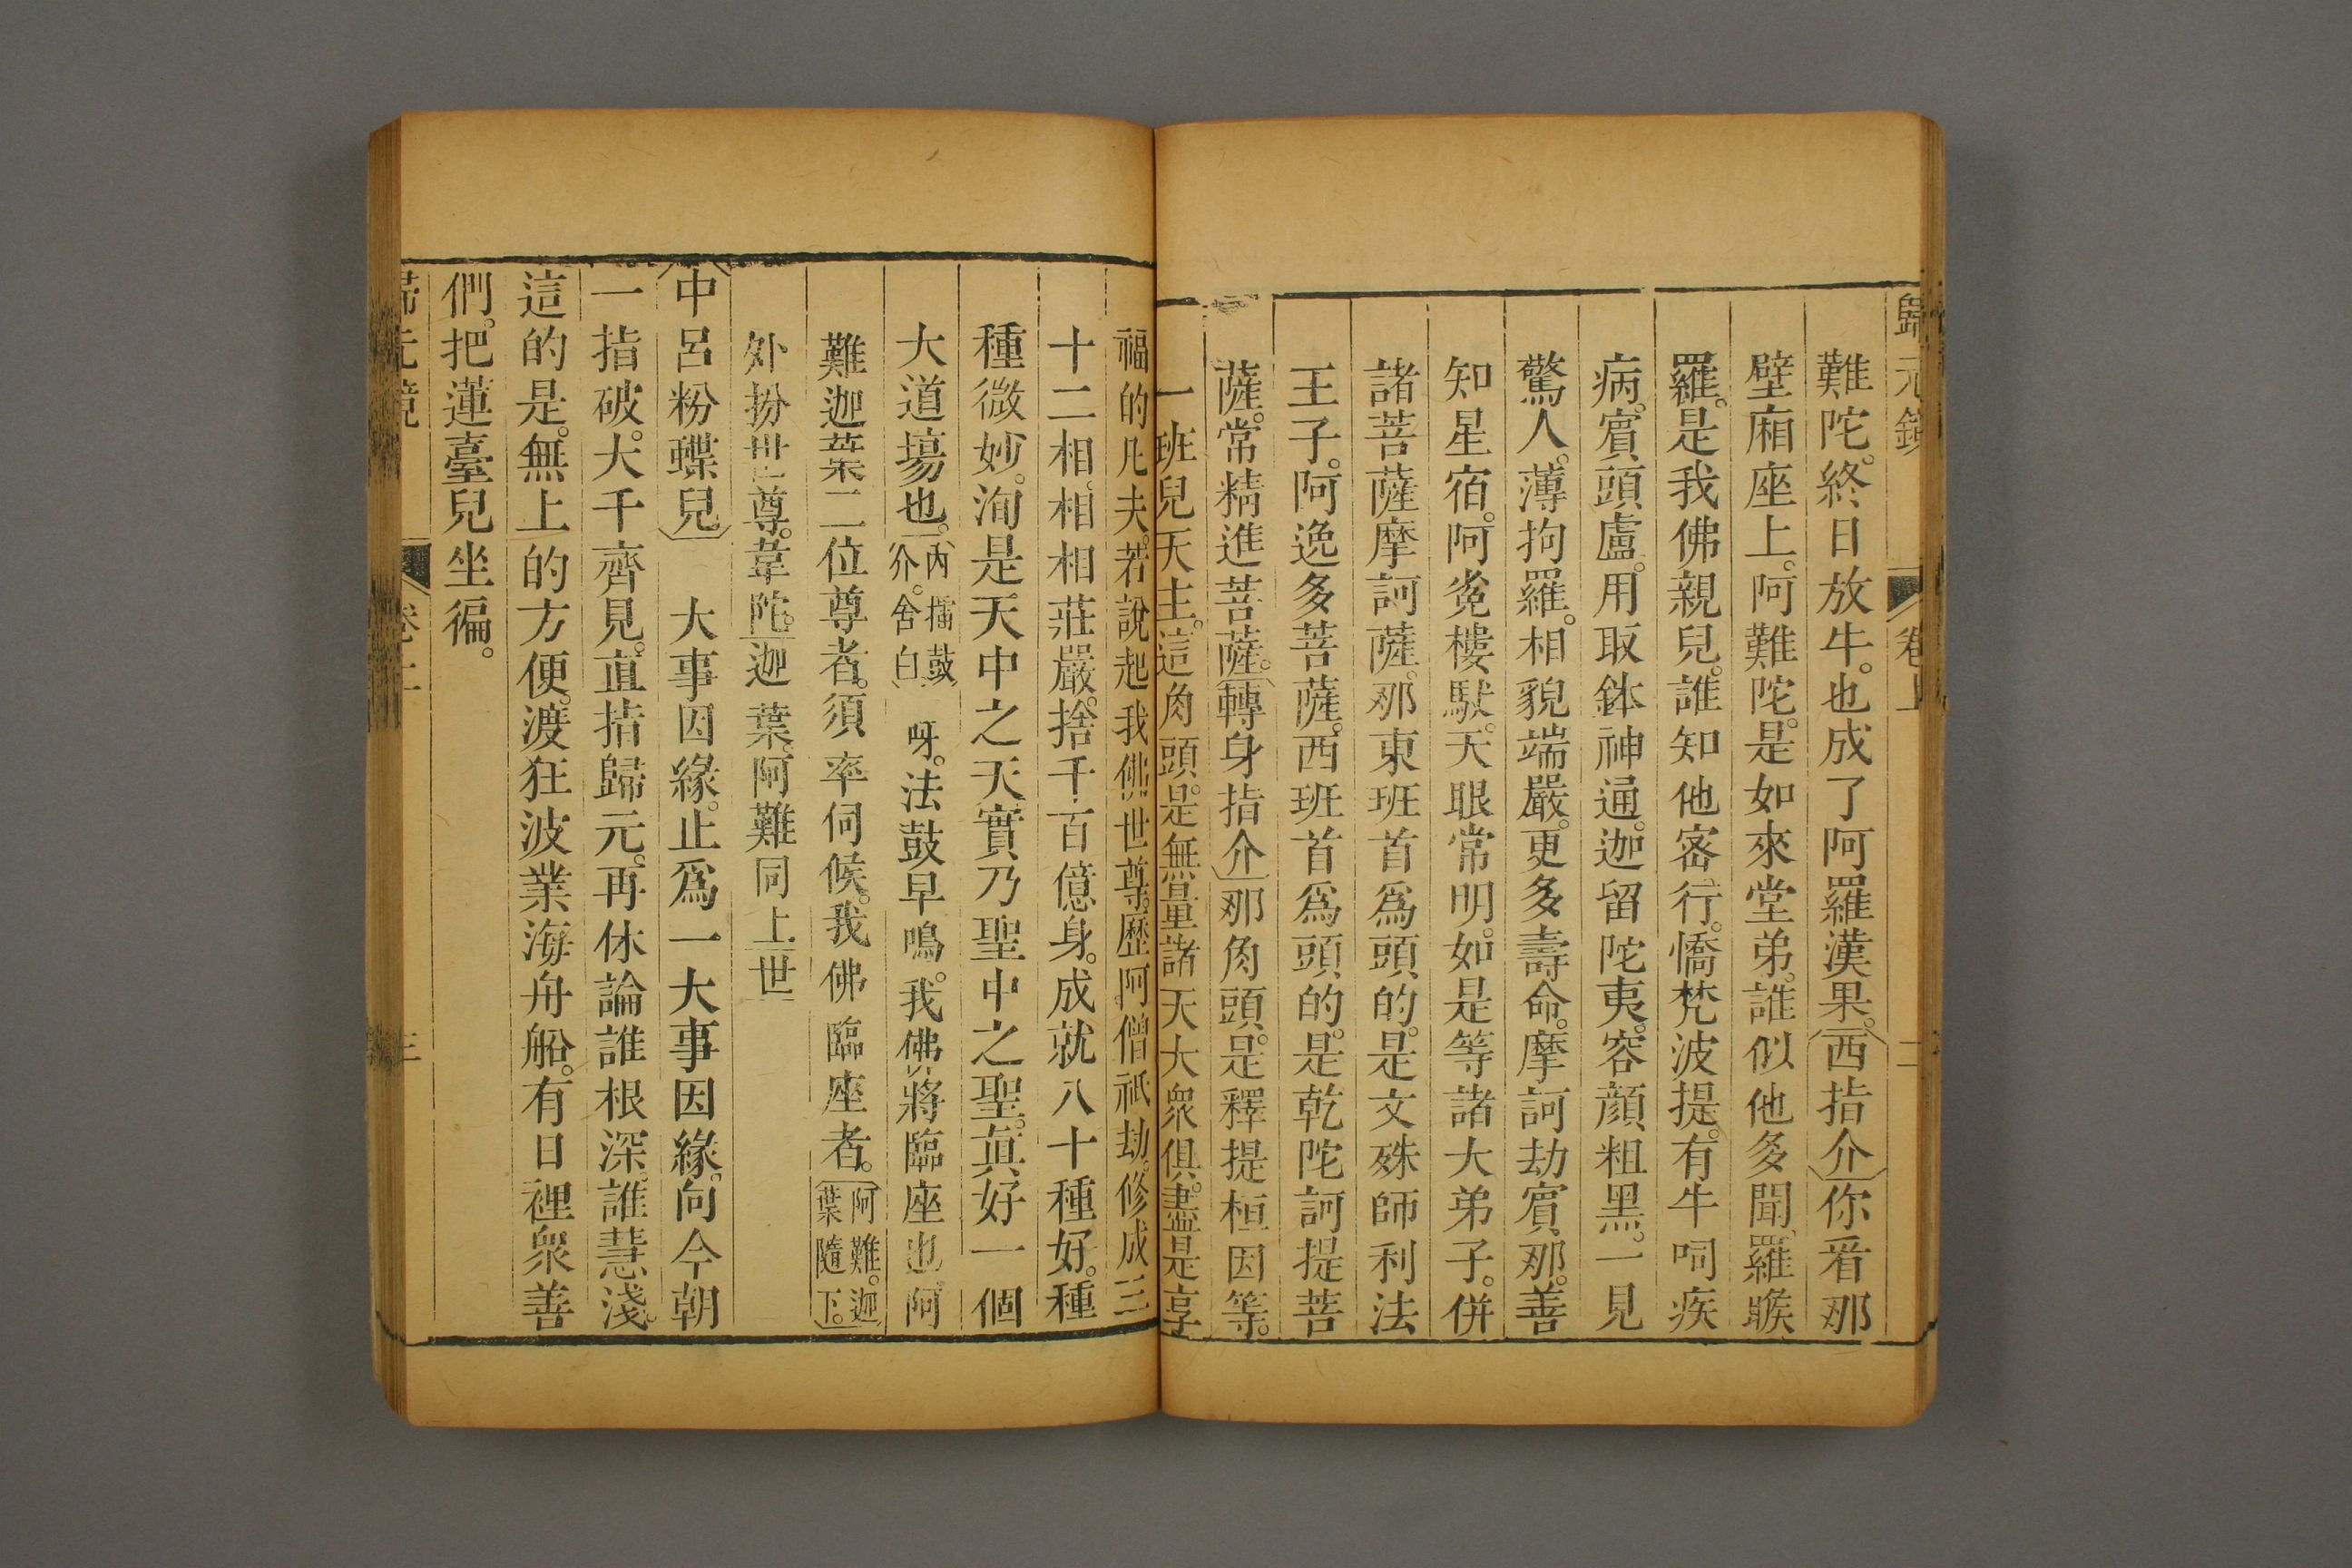 歸元鏡 卷上 二
難陀。終日放牛。也成了阿羅漢果。（西指介）你看那
壁廂座上。阿難陀。是如來堂弟。誰似他多聞、羅睺
羅。是我佛親兒。誰知他密行。憍梵波提。有牛呞疾
病。賓頭盧。用取鉢神通。迦留陀夷。容顏粗黑。一見
驚人。薄拘羅。相貌端嚴。更多壽命。摩訶劫賓那。善
知星宿。阿㝹樓馱。天眼常明。如是等諸大弟子。併
諸菩薩摩訶薩。那東班首爲頭的。是文殊師利法
王子。阿逸多菩薩。西班首爲頭的。是乾陀訶提菩
薩。常精進菩薩。（轉身指介）那角頭。是釋提桓因等。
一班兒天主。這角頭。是無量諸天大衆俱。盡是享
福的凡夫。若說起我佛世尊。歷阿僧祇劫。修成三
十二相。相相莊嚴。捨千百億身。成就八十種好。種
種微妙。洵是天中之天。實乃聖中之聖。眞好一個
大道場也。（內擂鼓介。舍白）呀。法鼓早鳴。我佛將臨座也。阿
難迦葉二位尊者。須率伺候。我佛臨座者。（阿難。迦葉隨下。）
外扮世尊。韋陀。迦葉。阿難同上世
（中呂粉蝶兒）大事因緣。止爲一大事因緣。向今朝
一指破。大千齊見。直指歸元。再休論誰根深。誰慧淺。
這的是。無上的方便。渡狂波業海舟船。有日裡衆善
們。把蓮臺兒坐徧。
歸元鏡 卷上 三